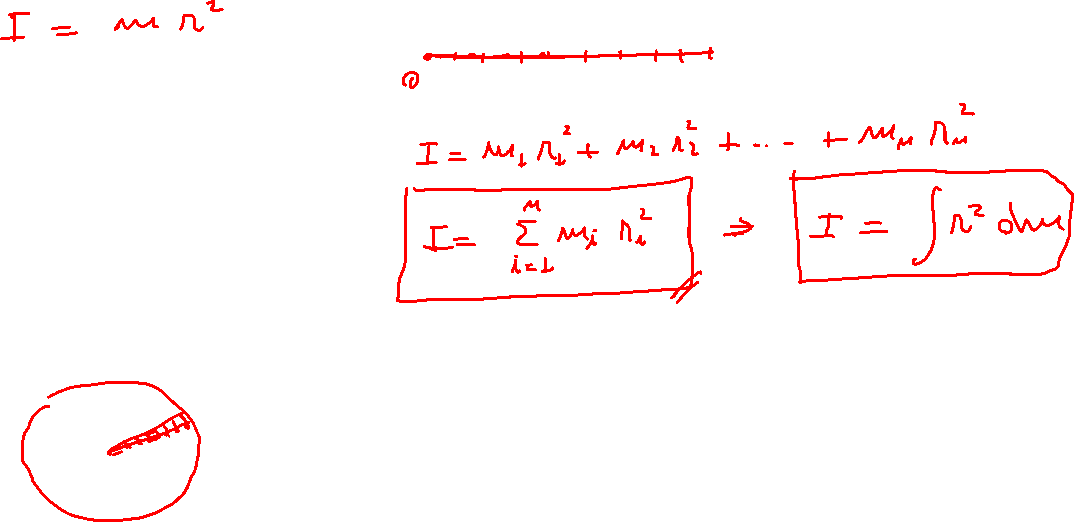 I = m r²
0
I = m₁ r₁² + m₂ r₂² + ... + mₙ rₙ²
I = ∑ⁿᵢ₌₁ mᵢ rᵢ² ⇒ I = ∫ r² dm